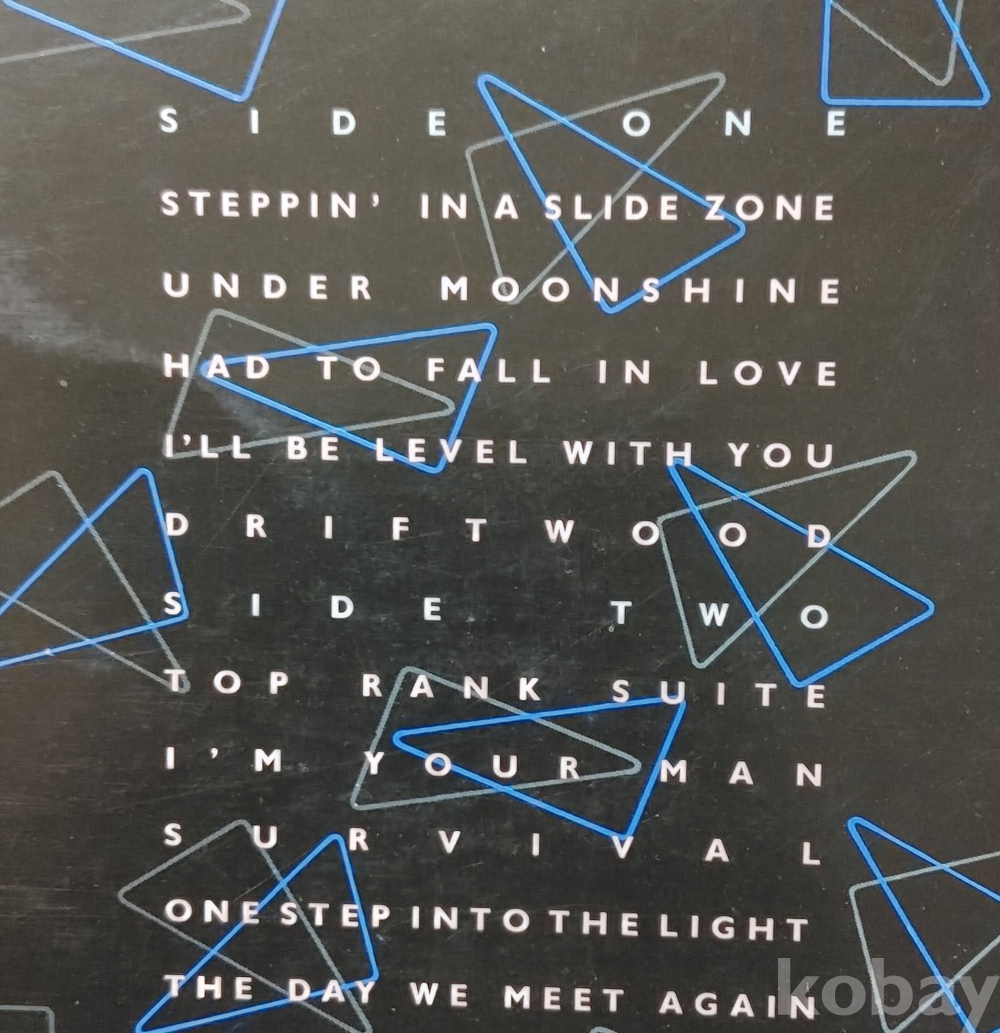 SIDE ONE
STEPPIN' IN A SLIDE ZONE
UNDER MOONSHINE
HAD TO FALL IN LOVE
I'LL BE LEVEL WITH YOU
DRIFTWOOD
SIDE TWO
TOP RANK SUITE
I'M YOUR MAN
SURVIVAL
ONE STEP INTO THE LIGHT
THE DAY WE MEET AGAIN
kobay